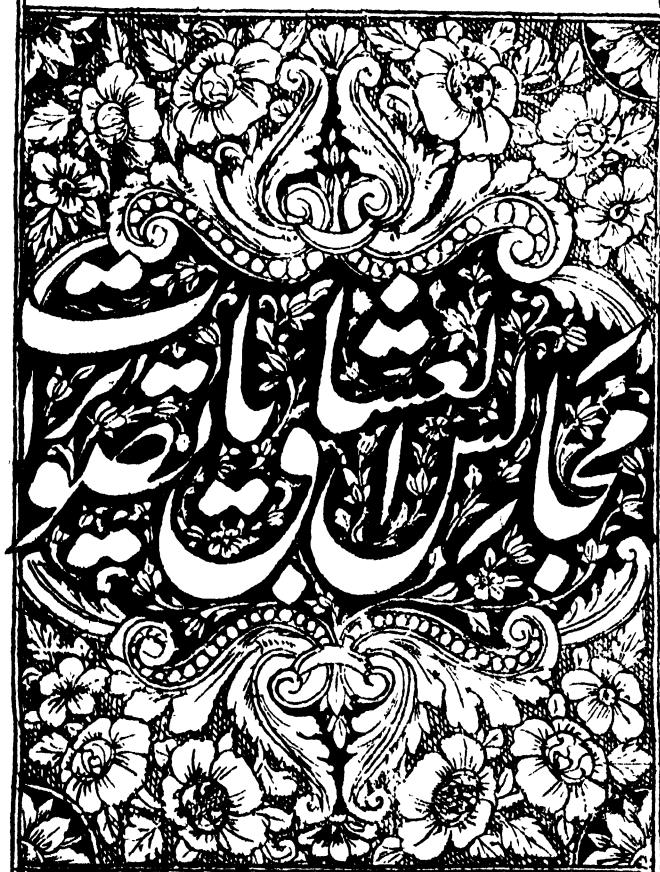 مجالس العشاق با تصویرات